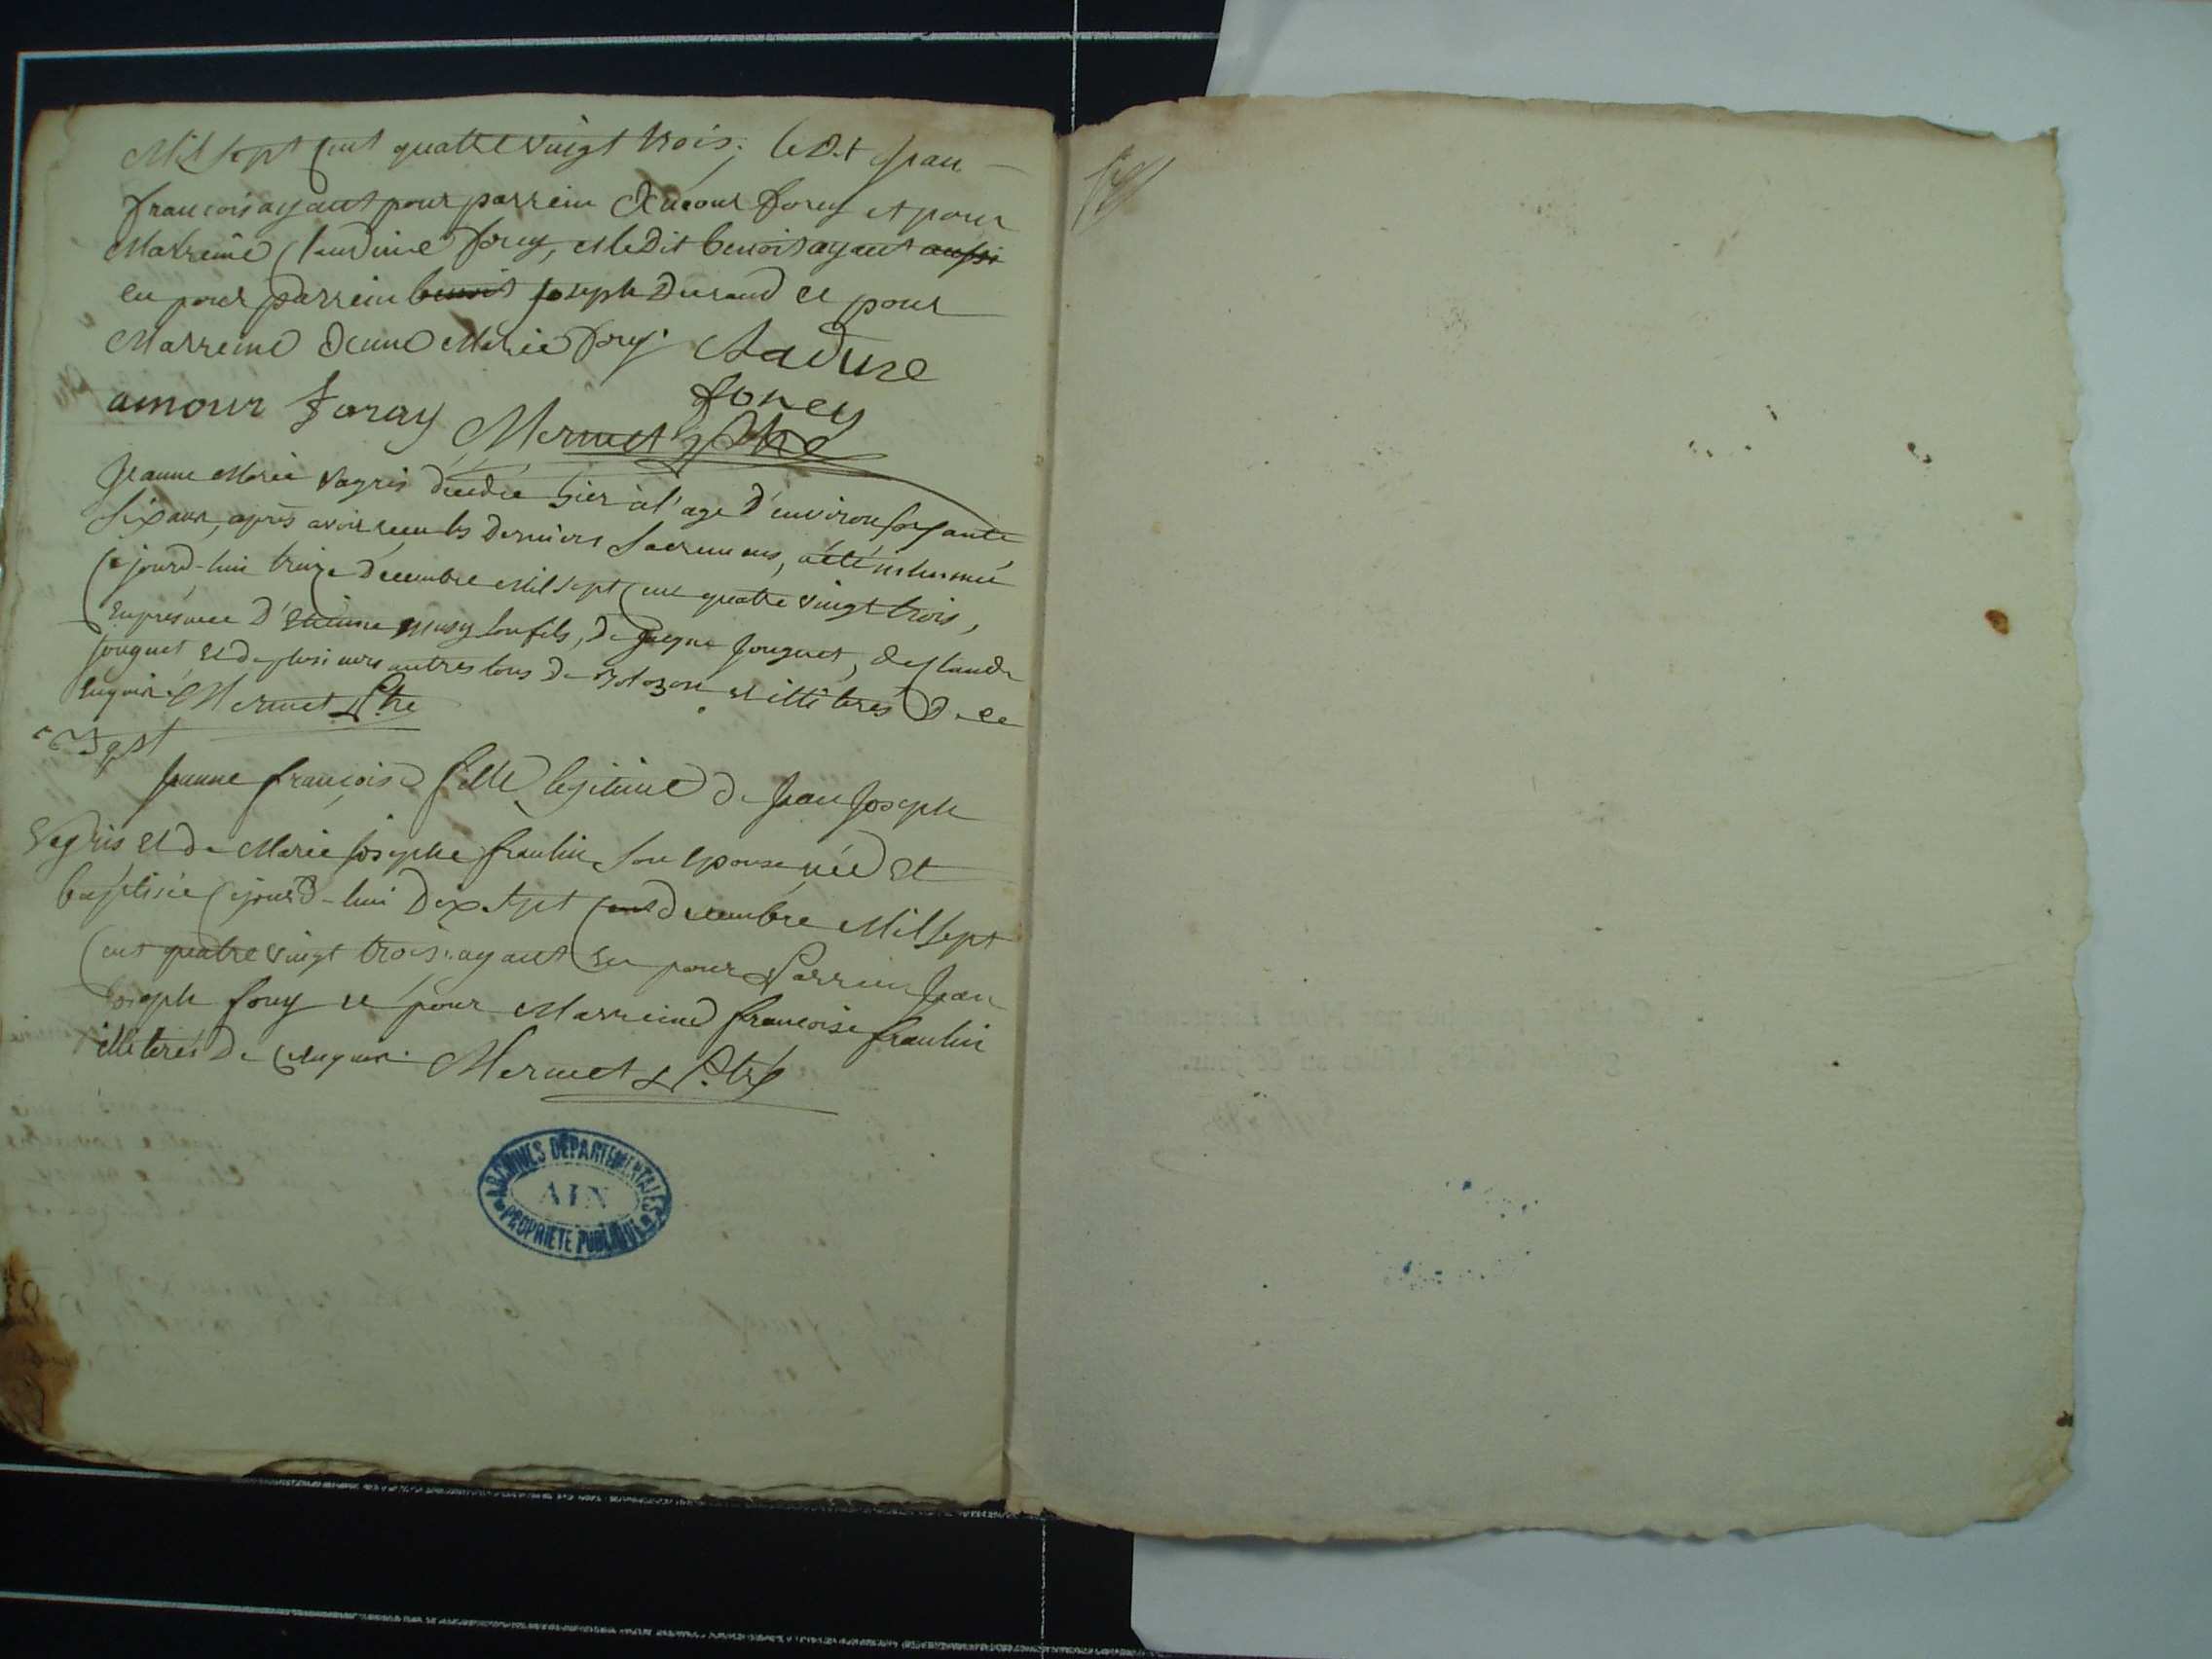 Mil sept cent quatre vingt trois; ledit Jean
francois ayant pour parrein amour forey et pour
Marreine Claudine forey, et ledit benoit ayant aussi
eu pour parrein benoit joseph Durand et pour
Marreine Marie forey.
Claudine
forey
amour foray Mermet Ptre
Jeanne Marie Vagris décédée hier à l'age d'environ soixante
six ans, après avoir reçu les derniers Sacremens, a été inhumée
Cejourd-hui treize decembre Mil sept cent quatre vingt trois,
En présence d'Etienne musy son fils, de Jouguet, de Claude
Jouguet et de plusieurs autres tous de Bolozon et illiterés de ce
Enquis. Mermet Ptre
Bapt
Jeanne françoise fille legitime de Jean Joseph
Vagris et de Marie josephe fraulin son epouse née et
baptisée Cejourd-hui dix sept cent decembre Mil sept
Cent quatre vingt trois, ayant eu pour Parrein Jean
Joseph forey et pour Marreine francoise fraulin
illiterés de Enquis. Mermet Ptre
ARCHIVES DÉPARTEMENTALES
AIN
PROPRIÉTÉ PUBLIQUE